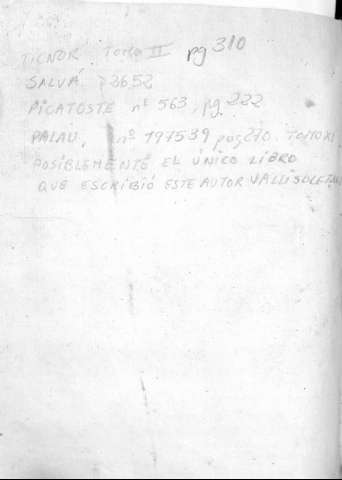 TICNOR Tomo II pg 310
SALVÁ 2652
PICATOSTE nº 563, pg 222
PALAU, nº 197539 pag 270. TOMO XI
POSIBLEMENTE EL ÚNICO LIBRO
QUE ESCRIBIÓ ESTE AUTOR VALLISOLETANO